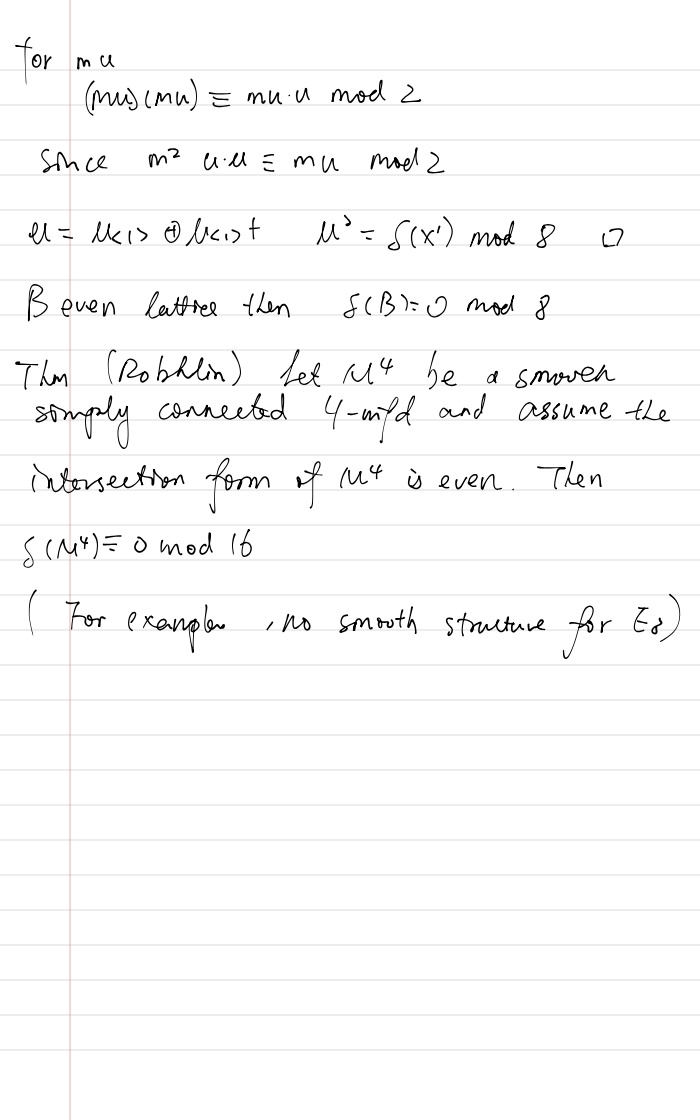 for mu
(mu)(mu) ≡ mu·u mod 2
Since m² u·u ≡ mu mod 2
u = u<1> ⊕ u<1>⊥ u² = δ(X') mod 8 □
B even lattice then δ(B)=0 mod 8
Thm (Robhlin) Let M⁴ be a smooth
simply connected 4-mfd and assume the
intersection form of M⁴ is even. Then
δ(M⁴) ≡ 0 mod 16
( For example, no smooth structure for E₈)